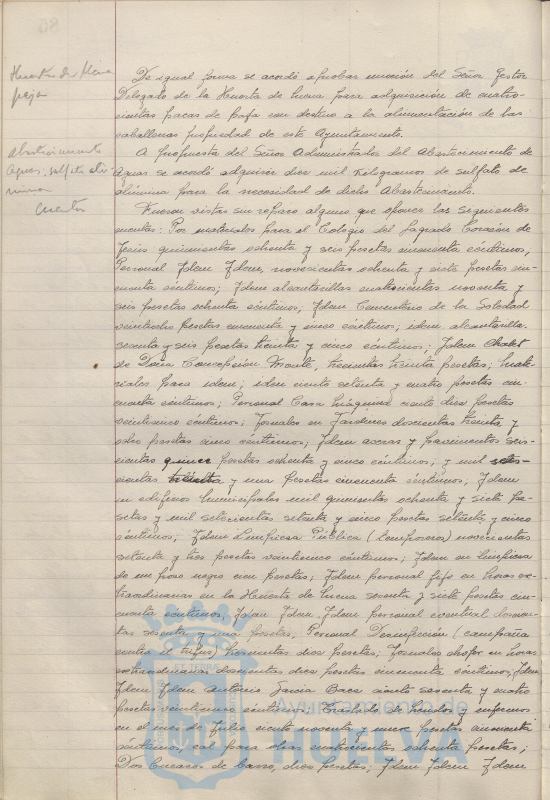 Huerta de Mena
paja
De igual forma se acordó aprobar moción del Señor Gestor
Delegado de la Huerta de Mena para adquisición de cuatro-
cientas pacas de paja con destino a la alimentación de las
caballerías propiedad de este Ayuntamiento.
abastecimiento
Aguas, sulfato alu-
mina
A propuesta del Señor Administrador del Abastecimiento de
Aguas se acordó adquirir diez mil kilogramos de sulfato de
alúmina para la necesidad de dicho Abastecimiento.
Cuentas
Fueron vistas sin reparo alguno que oponer las siguientes
cuentas: Por materiales para el Colegio del Sagrado Corazón de
Jesús quinientas ochenta y seis pesetas cincuenta céntimos;
Personal Idem Idem, novecientas ochenta y siete pesetas cin-
cuenta céntimos; Idem alcantarillas cuatrocientas noventa y
seis pesetas ochenta céntimos; Idem Cementerio de la Soledad
veintiocho pesetas cincuenta y cinco céntimos; idem alcantarilla
sesenta y seis pesetas treinta y cinco céntimos; Idem Chalet
de Doña Concepción Monte, trescientas treinta pesetas; mate-
riales para idem; idem ciento setenta y cuatro pesetas cin-
cuenta céntimos; Personal Casa máquinas ciento diez pesetas
veinticinco céntimos; Jornales en Jardines doscientas treinta y
ocho pesetas cinco céntimos; Idem aceras y pavimentos seis-
cientas quince pesetas ochenta y cinco céntimos; y mil
cientas y una pesetas cincuenta céntimos; Idem
en edificios municipales mil quinientas ochenta y siete pe-
setas y mil setecientas setenta y cinco pesetas setenta y cinco
céntimos; Idem Limpieza Pública (Limpiezas) novecientas
setenta y tres pesetas veinticinco céntimos; Idem en limpieza
de un pozo negro cien pesetas; Idem personal fijo en horas ex-
traordinarias en la Huerta de Mena sesenta y siete pesetas cin-
cuenta céntimos; Idem Idem Idem personal eventual doscien-
tas sesenta y una pesetas; Personal Desinfección (campaña
contra el tifus) trescientas diez pesetas; Jornales chofer en horas
extraordinarias doscientas diez pesetas cincuenta céntimos; Idem
Idem Idem Antonio Garcia Baez ciento sesenta y cuatro
pesetas veinticinco céntimos; Traslado de heridos y enfermos
en el mes de Julio ciento noventa y nueve pesetas cincuenta
céntimos; cal para obras cuatrocientas ochenta pesetas;
Dos Cucaros de barro, diez pesetas; Idem Idem Idem
Ayuntamiento de
HUELVA